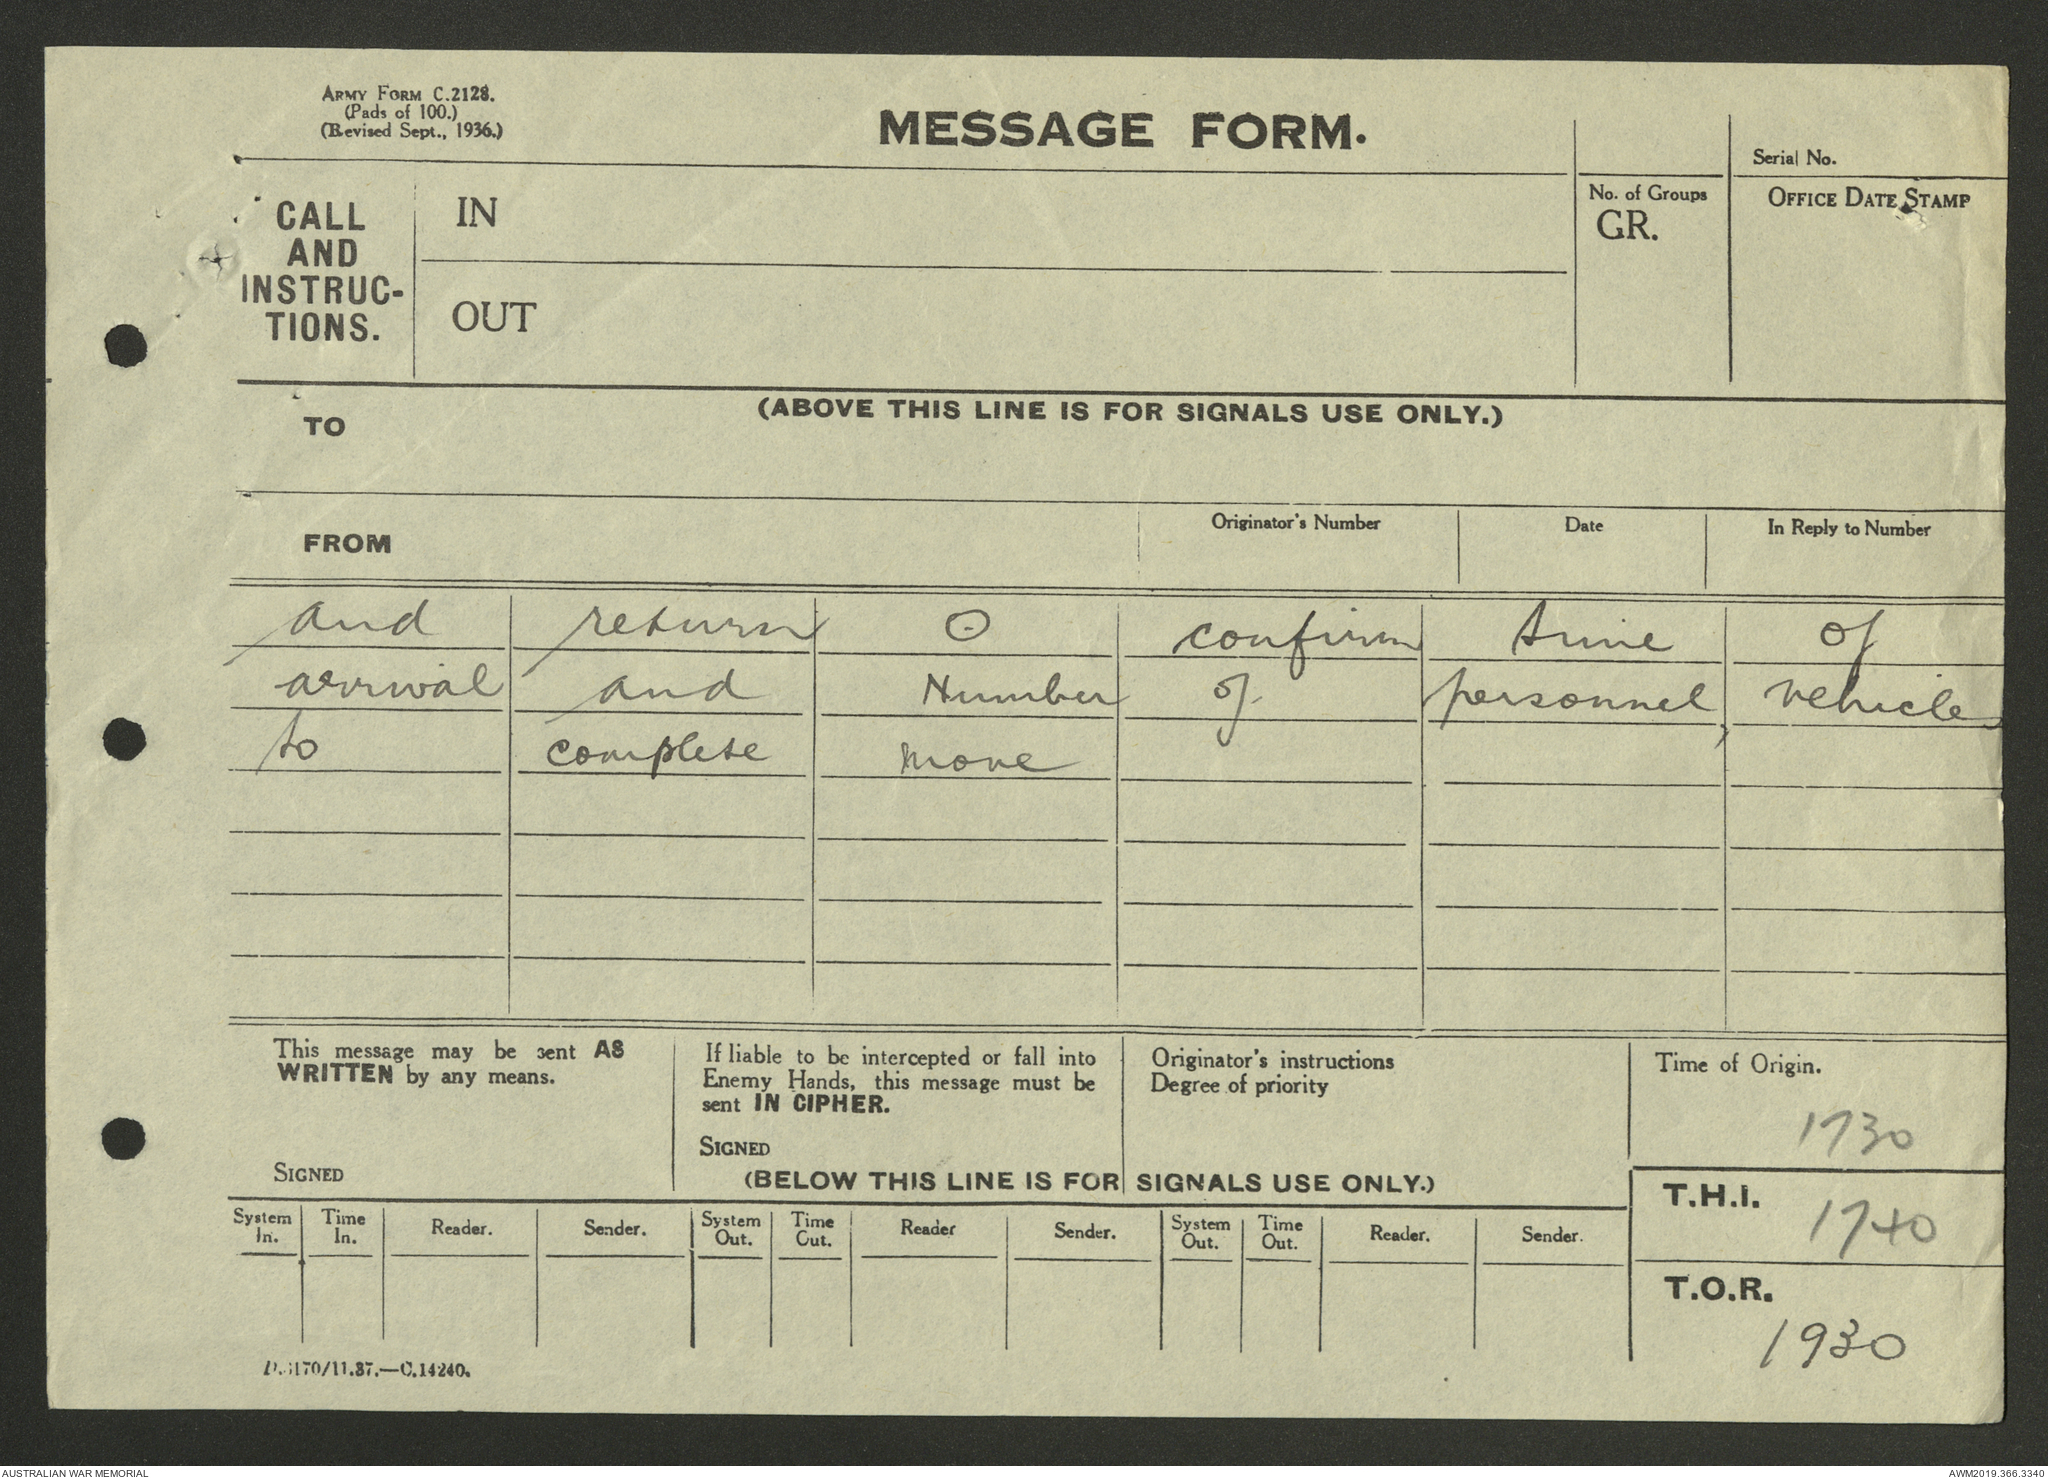 ARMY FORM C.2128.
(Pads of 100.)
(Revised Sept., 1936.)
MESSAGE FORM.
Serial No.
CALL
AND
INSTRUC-
TIONS.
IN
OUT
No. of Groups
GR.
OFFICE DATE STAMP
(ABOVE THIS LINE IS FOR SIGNALS USE ONLY.)
TO
FROM
Originator's Number
Date
In Reply to Number
and return O confirm time of
arrival and Number of personnel, vehicle
to complete move
This message may be sent AS
WRITTEN by any means.
SIGNED
If liable to be intercepted or fall into
Enemy Hands, this message must be
sent IN CIPHER.
SIGNED
Originator's instructions
Degree of priority
Time of Origin.
1730
(BELOW THIS LINE IS FOR SIGNALS USE ONLY.)
T.H.I. 1740
T.O.R.
1930
System In. Time In. Reader. Sender. System Out. Time Out. Reader Sender. System Out. Time Out. Reader. Sender.
/11.37.—C.14240.
AUSTRALIAN WAR MEMORIAL
AWM2019.366.3340